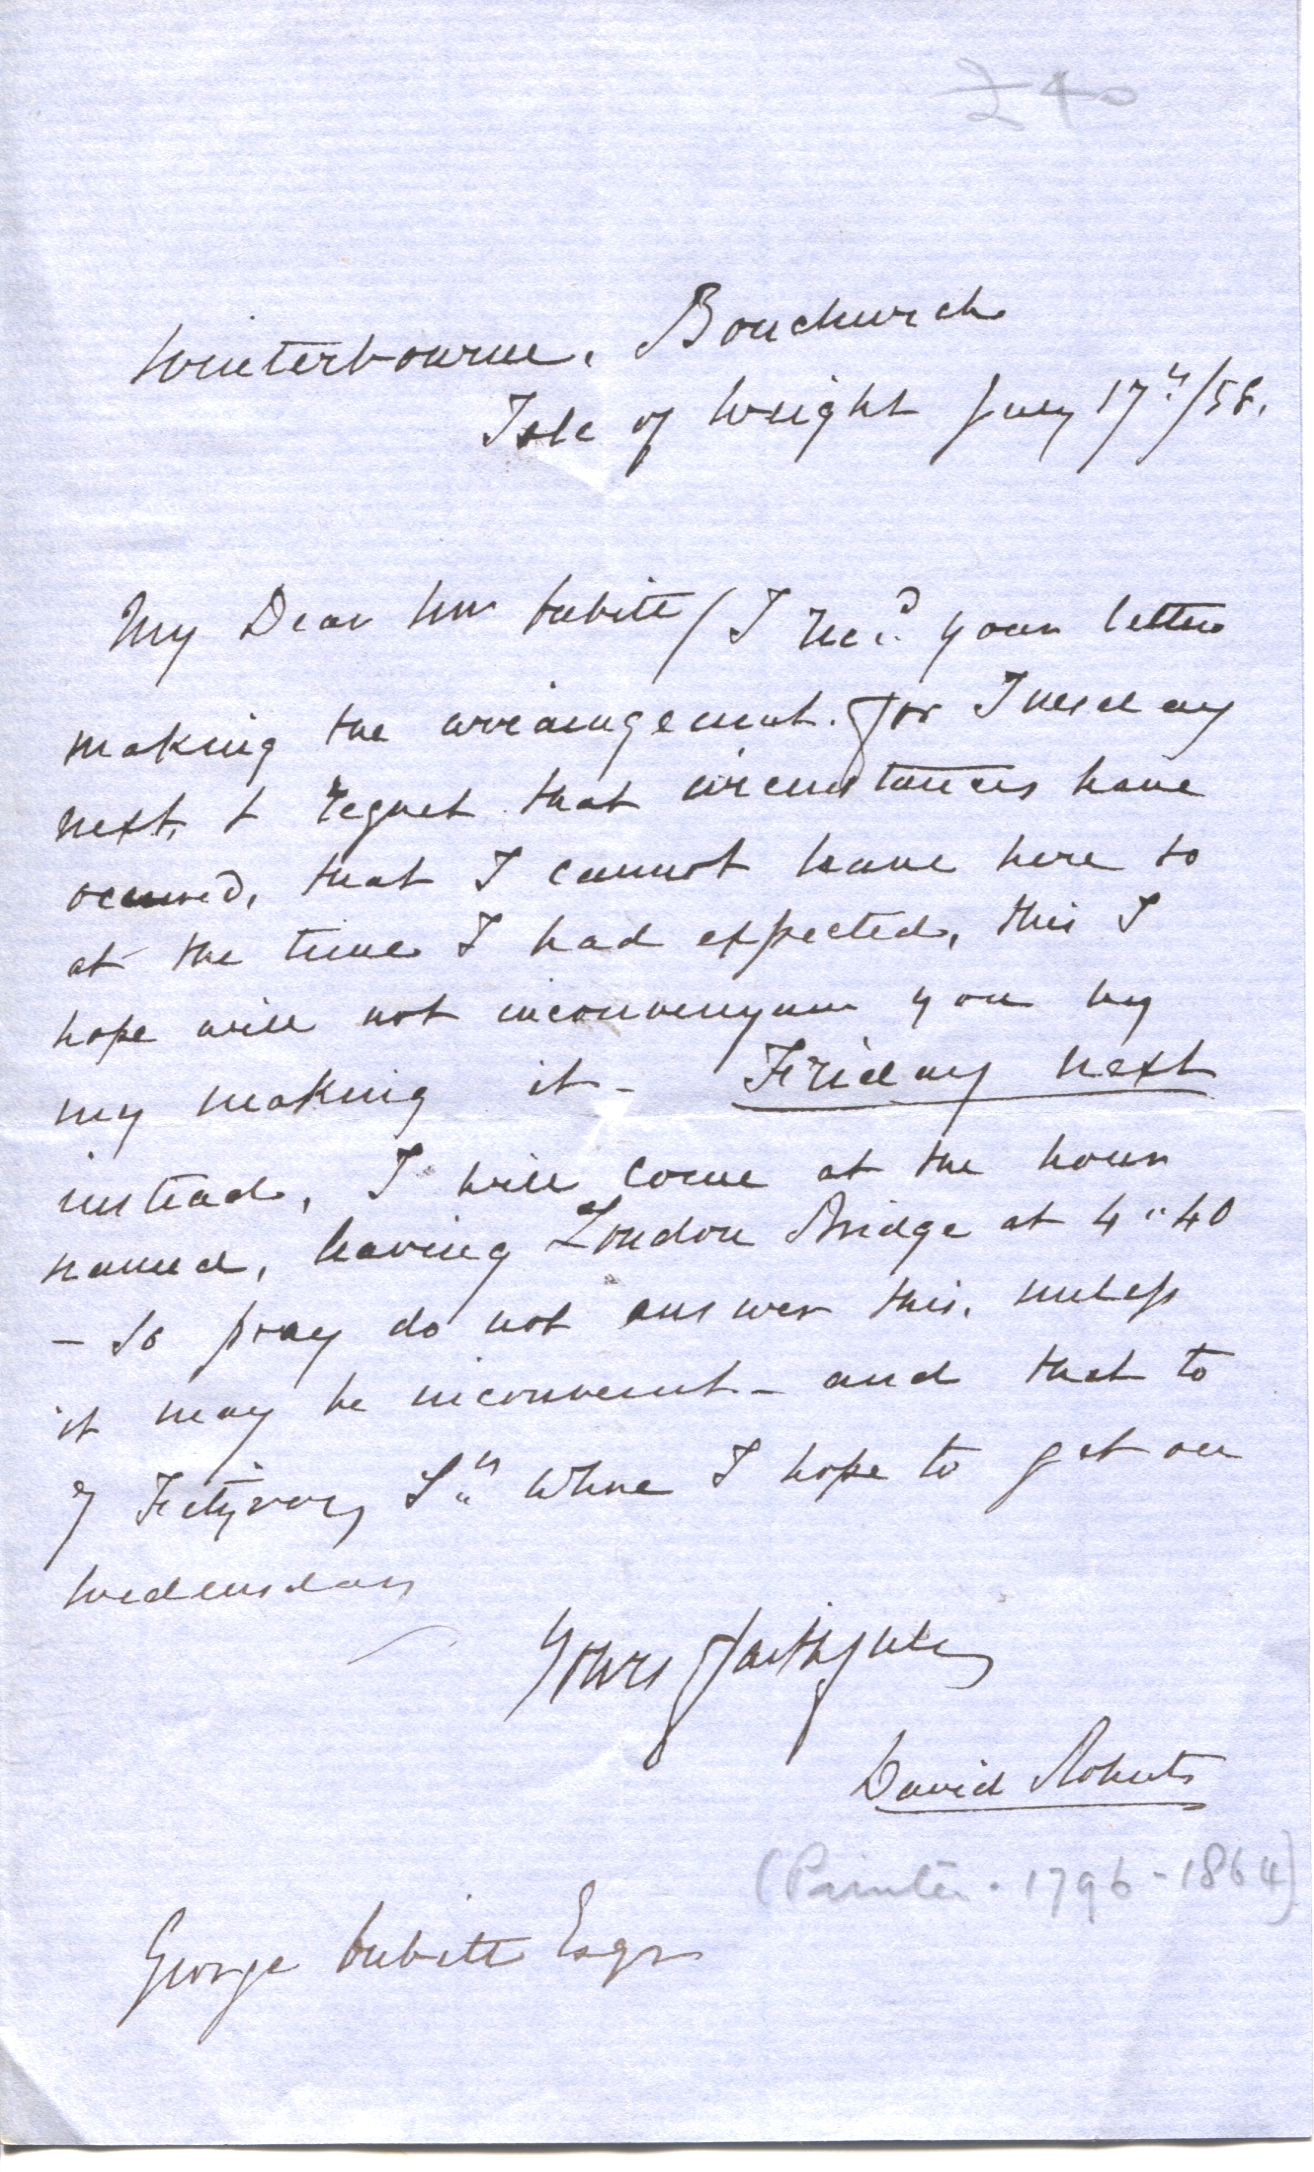 240
Winterbourne, Bonchurch
Isle of Wright July 17th/58.
My Dear Mr Cubitt / I recd your letter
making the arraingement for Tuesday
next, & regret that circumstances have
occured, that I cannot leave here so
at the time I had expected, this I
hope will not you by
my making it – Friday next
instead, I will come at the hour
named, leaving London Bridge at 4"40
– So pray do not answer this, unless
it may be inconvenient – and that to
7 Fitzroy St. where I hope to get on
Wedensday
Yours faithfully
David Roberts
(Painter. 1796-1864)
George Cubitt Esqr